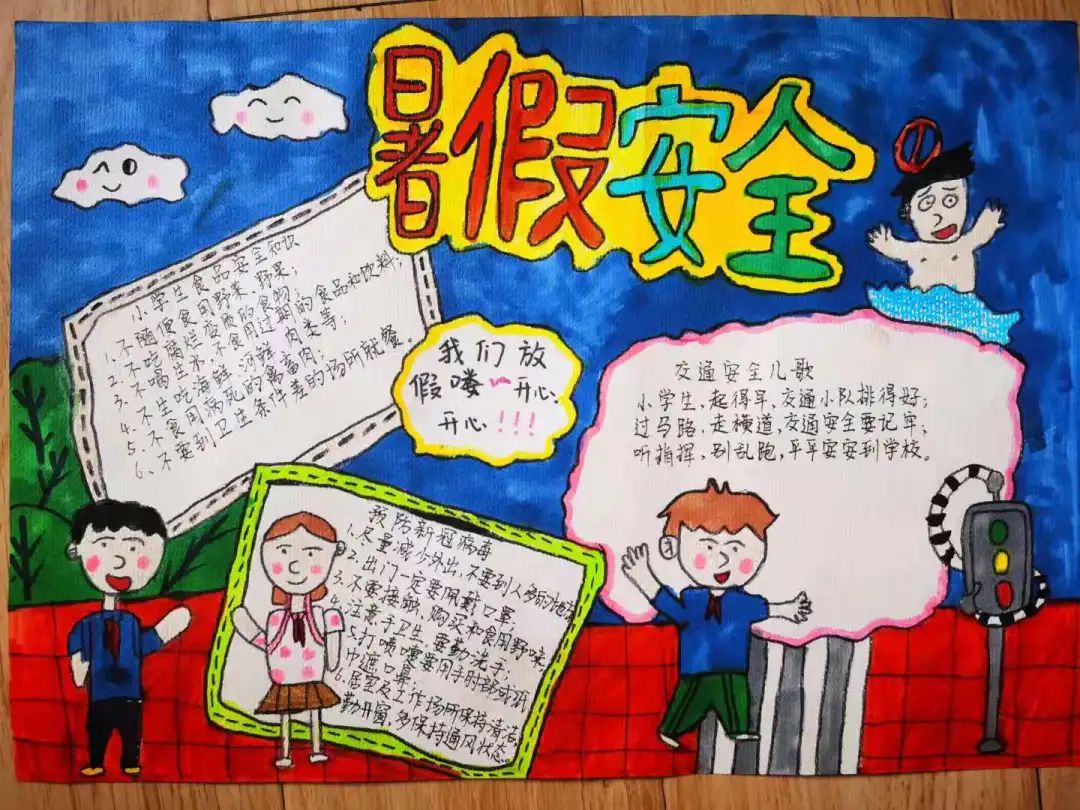 暑假安全
小学生食品安全知识
1、不随便食用野菜、野果；
2、不吃腐烂变质的食物；
3、不喝生水，不食用过期的食品和饮料；
4、不生吃海鲜、河鲜、肉类等；
5、不食用病死的禽畜肉；
6、不要到卫生条件差的场所就餐。
我们放
假喽 开心、
开心!!!
交通安全儿歌
小学生，起得早，交通小队排得好；
过马路，走横道，交通安全要记牢；
听指挥，别乱跑，平平安安到学校。
预防新冠病毒
1、尽量减少外出，不要到人多的地方
2、出门一定要佩戴口罩
3、不要接触，购买和食用野味
4、注意手卫生，要勤洗手；
5、打喷嚏要用手肘部或纸
巾遮口鼻
6、居室及工作场所保持清洁，
勤开窗，多保持通风状态。